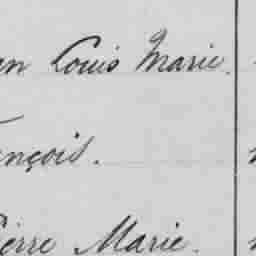 an Louis Marie.
ançois.
ierre Marie.